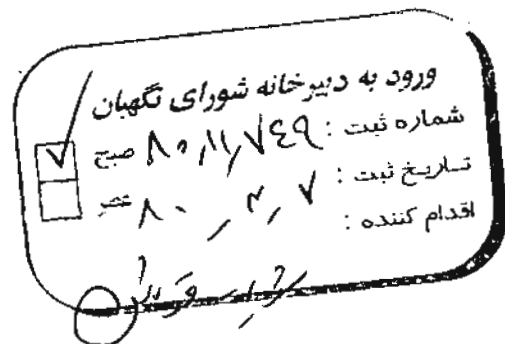 ورود به دبیرخانه شورای نگهبان
شماره ثبت : ۸۰٫۱۱٫۷۴۹ صبح
تاریخ ثبت : ۷ ٫ ۳ ٫ ۸۰ عصر
اقدام کننده :